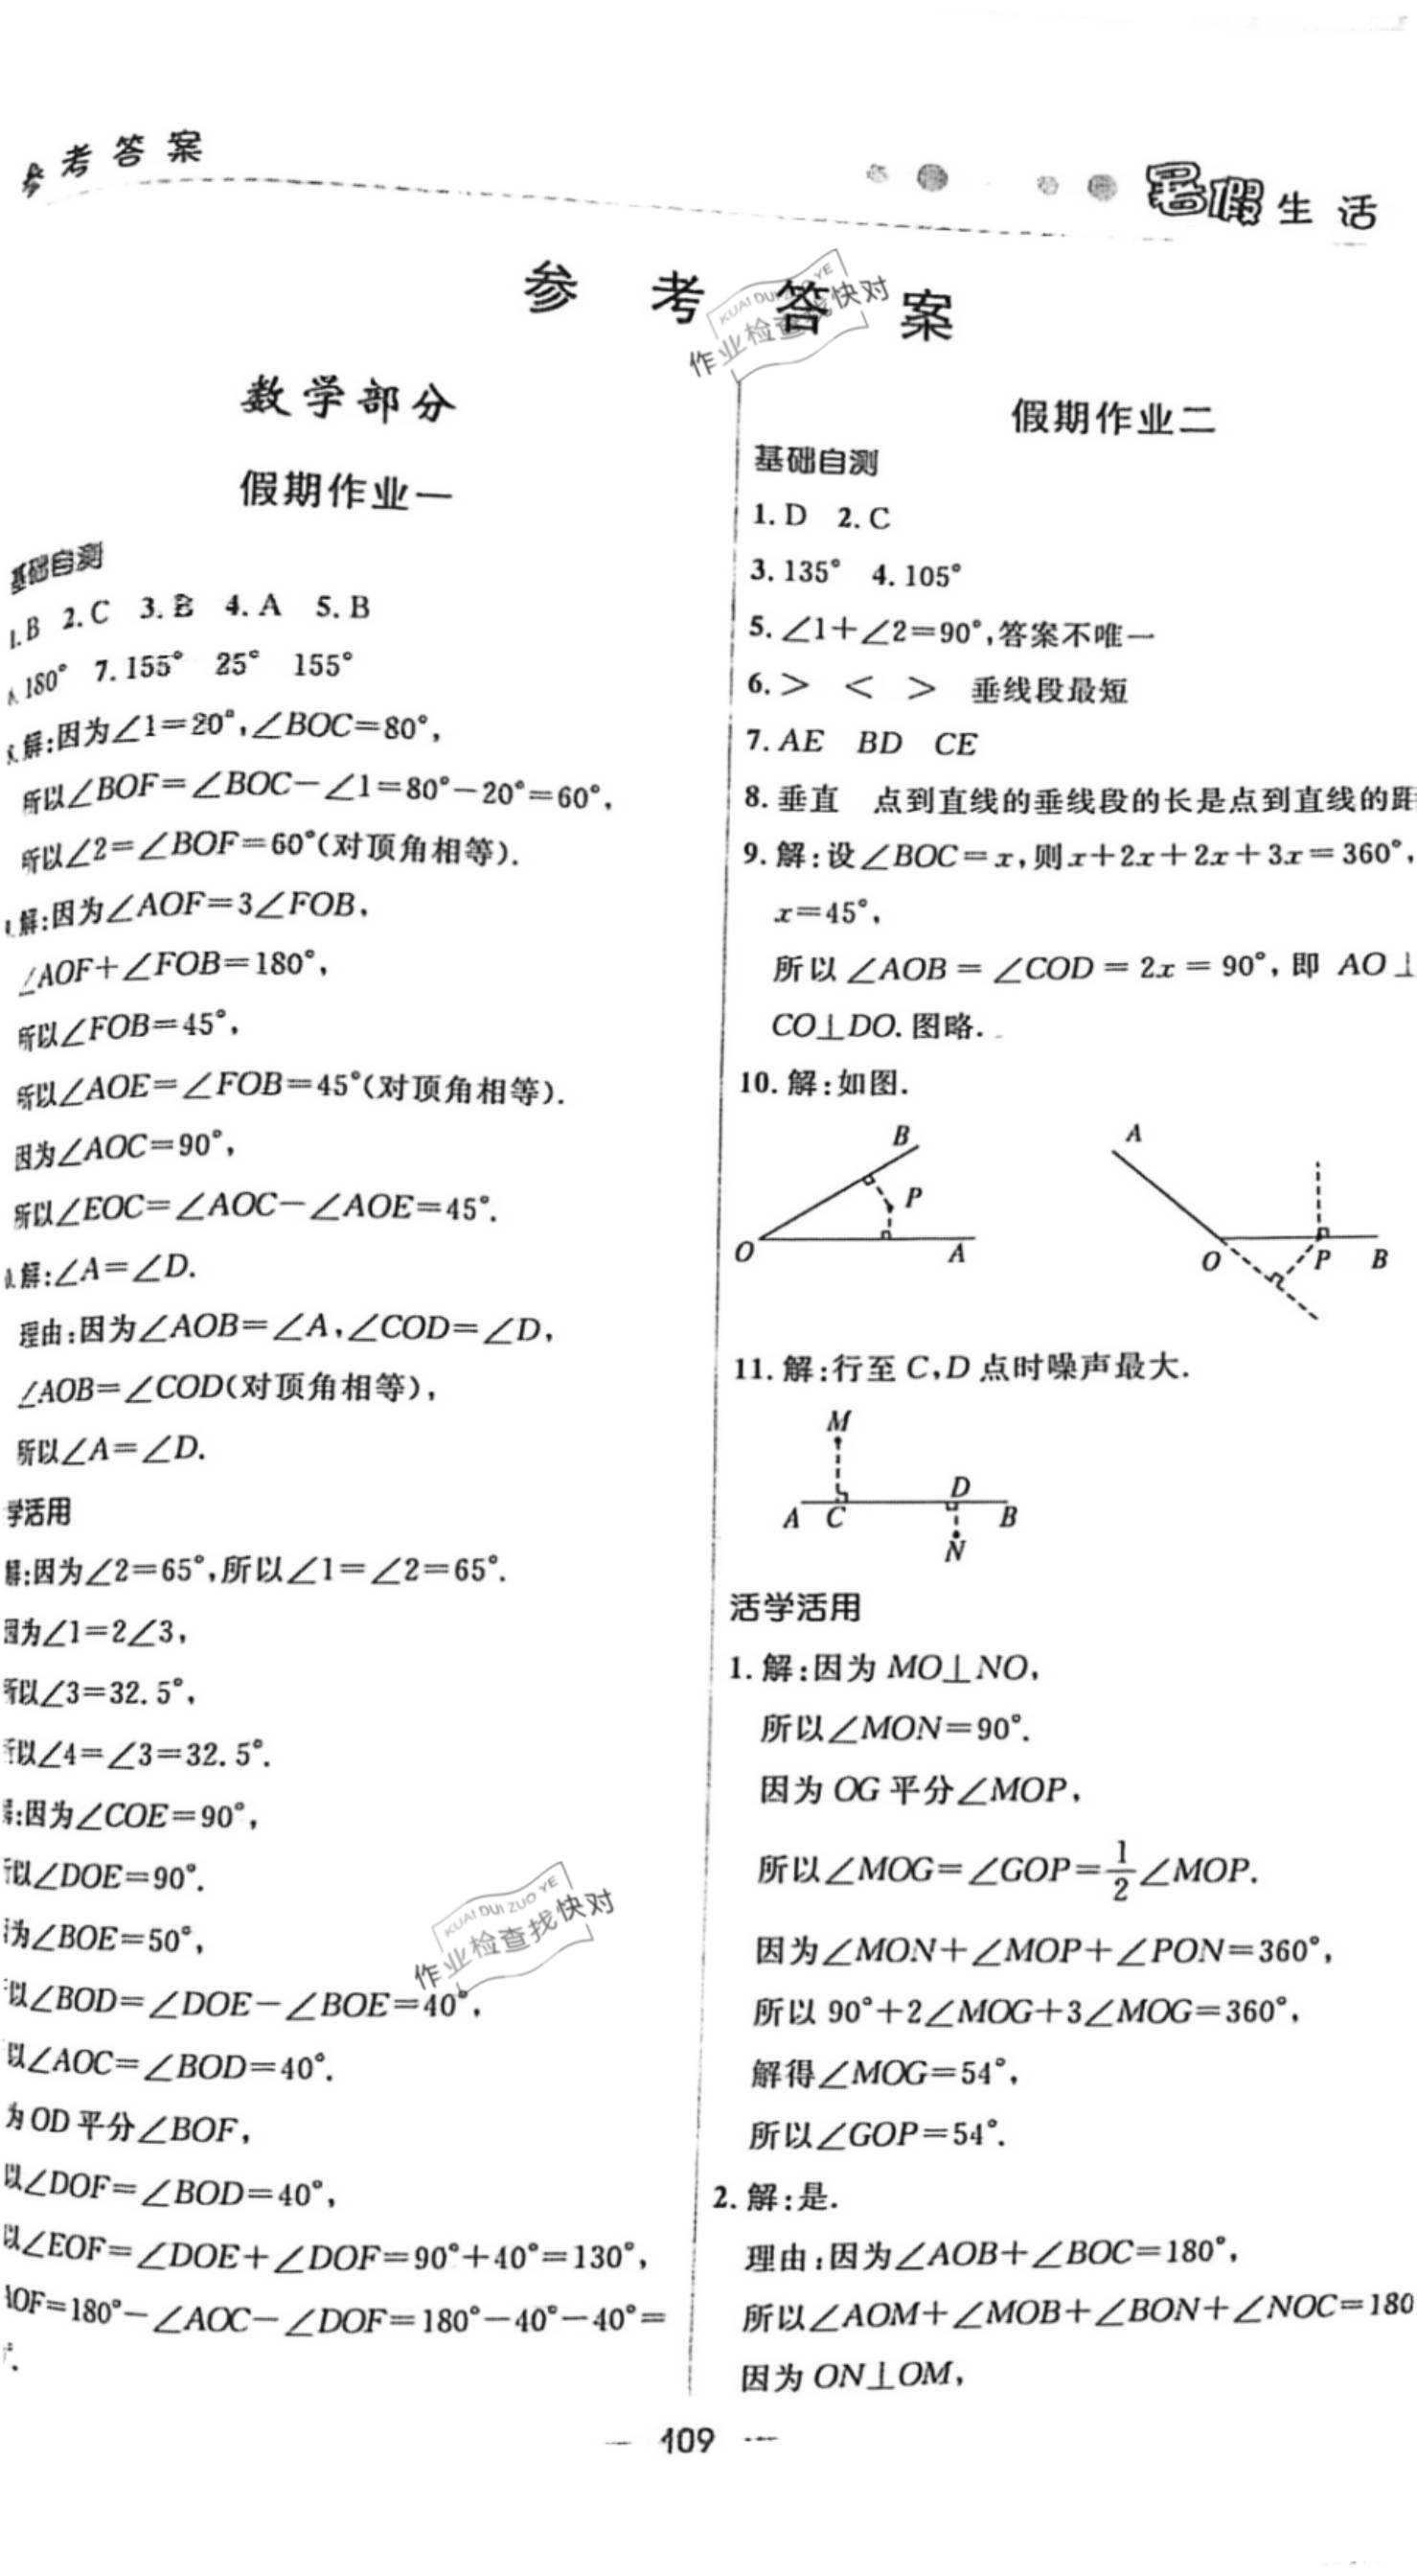 参考答案
暑假生活
参考答案
数学部分
假期作业一
基础自测
1.B 2.C 3.B 4.A 5.B
180° 7.155° 25° 155°
解:因为∠1=20°,∠BOC=80°,
所以∠BOF=∠BOC-∠1=80°-20°=60°,
所以∠2=∠BOF=60°(对顶角相等).
解:因为∠AOF=3∠FOB,
∠AOF+∠FOB=180°,
所以∠FOB=45°,
所以∠AOE=∠FOB=45°(对顶角相等).
因为∠AOC=90°,
所以∠EOC=∠AOC-∠AOE=45°.
解:∠A=∠D.
理由:因为∠AOB=∠A,∠COD=∠D,
∠AOB=∠COD(对顶角相等),
所以∠A=∠D.
学活用
解:因为∠2=65°,所以∠1=∠2=65°.
因为∠1=2∠3,
所以∠3=32.5°,
所以∠4=∠3=32.5°.
:因为∠COE=90°,
以∠DOE=90°.
为∠BOE=50°,
以∠BOD=∠DOE-∠BOE=40°,
以∠AOC=∠BOD=40°.
为OD平分∠BOF,
以∠DOF=∠BOD=40°,
以∠EOF=∠DOE+∠DOF=90°+40°=130°,
AOF=180°-∠AOC-∠DOF=180°-40°-40°=
假期作业二
基础自测
1.D 2.C
3.135° 4.105°
5.∠1+∠2=90°,答案不唯一
6.> < > 垂线段最短
7.AE BD CE
8.垂直 点到直线的垂线段的长是点到直线的距
9.解:设∠BOC=x,则x+2x+2x+3x=360°,
x=45°,
所以∠AOB=∠COD=2x=90°,即 AO⊥
CO⊥DO.图略.
10.解:如图.
B P O A
A O P B
11.解:行至C,D点时噪声最大.
M
D
A C B
N
活学活用
1.解:因为MO⊥NO,
所以∠MON=90°.
因为OG平分∠MOP,
所以∠MOG=∠GOP=1/2∠MOP.
因为∠MON+∠MOP+∠PON=360°,
所以90°+2∠MOG+3∠MOG=360°,
解得∠MOG=54°,
所以∠GOP=54°.
2.解:是.
理由:因为∠AOB+∠BOC=180°,
所以∠AOM+∠MOB+∠BON+∠NOC=180
因为ON⊥OM,
109
KUAI DUI ZUO YE
作业检查找快对
KUAI DUI ZUO YE
作业检查找快对